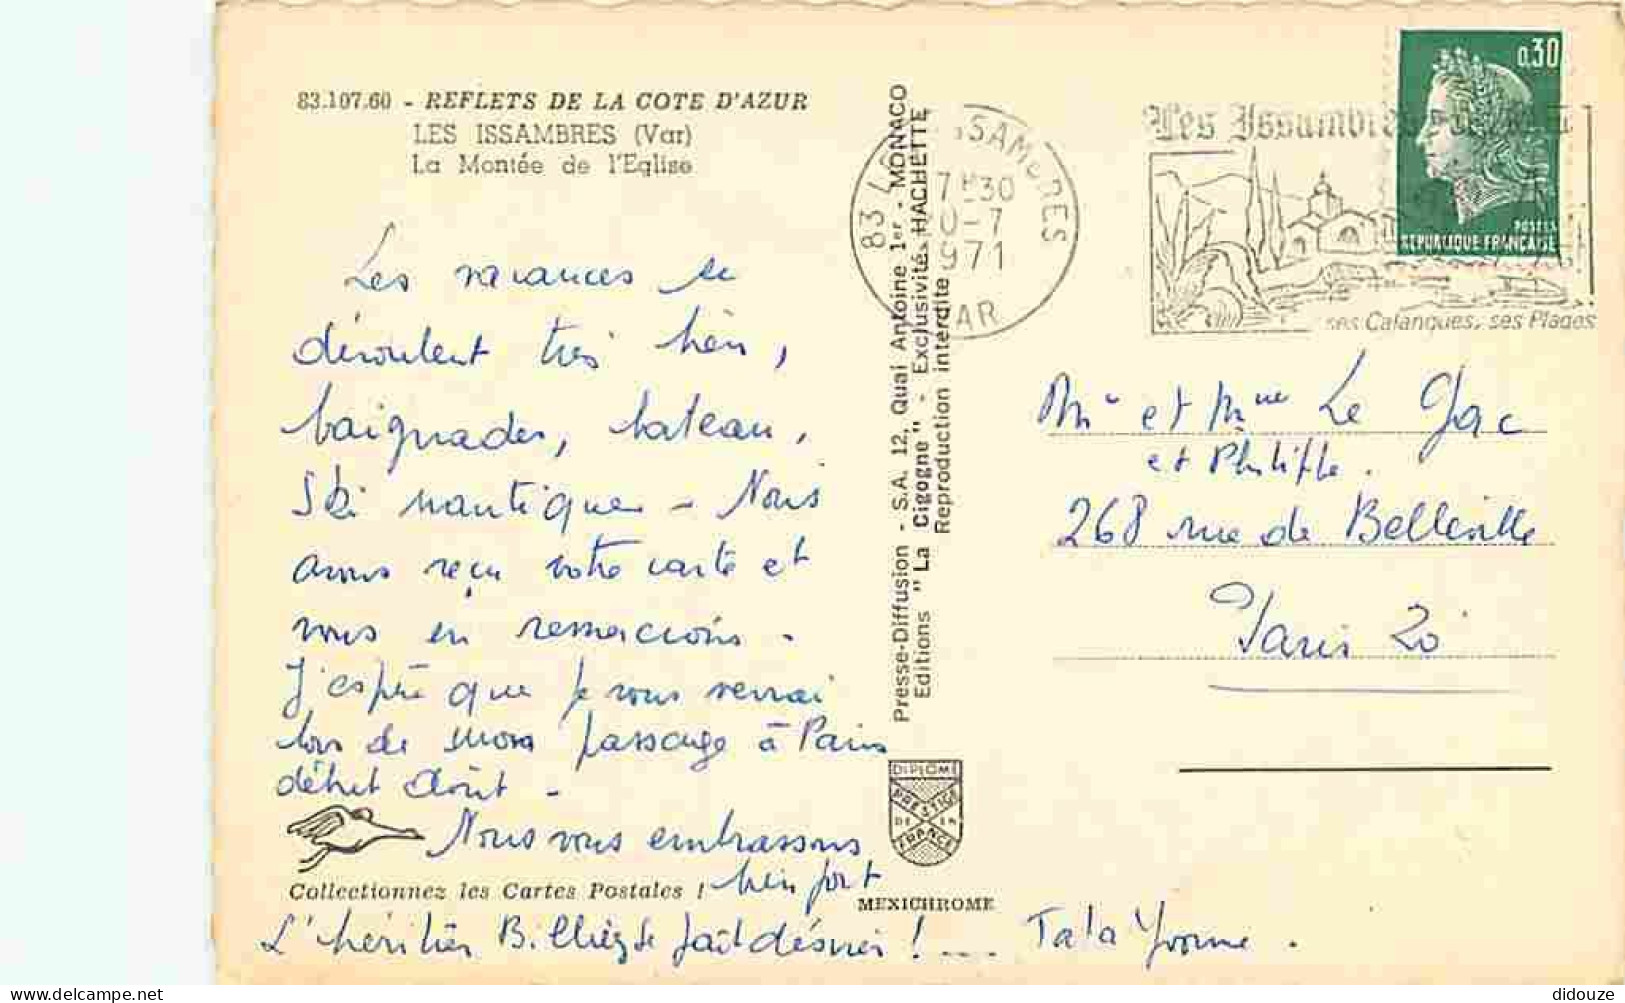 83.107.60 - REFLETS DE LA COTE D'AZUR
LES ISSAMBRES (Var)
La Montée de l'Eglise
Les vacances se
déroulent très bien,
baignades, bateau,
Ski nautique - Nous
avons reçu votre carte et
vous en remercions.
J'espère que je vous verrai
lors de mon passage à Paris
début Août -
Nous vous embrassons
bien fort
Collectionnez les Cartes Postales !
L'héritier se fait désirer ! ....
Tata Yvonne.
Presse-Diffusion - S.A. 12, Quai Antoine 1er - MONACO
Editions "La Cigogne" - Exclusivité HACHETTE
Reproduction interdite
DIPLOME
PRESTIGE
DE LA
FRANCE
MEXICHROME
83 LES ISSAMBRES
7H30
0-7
1971
VAR
Les Issambres
ses Calanques, ses Plages
0,30
POSTES
REPUBLIQUE FRANÇAISE
Mr et Mme Le Gac
et Philippe.
268 rue de Belleville
Paris 20
delcampe.net
didouze